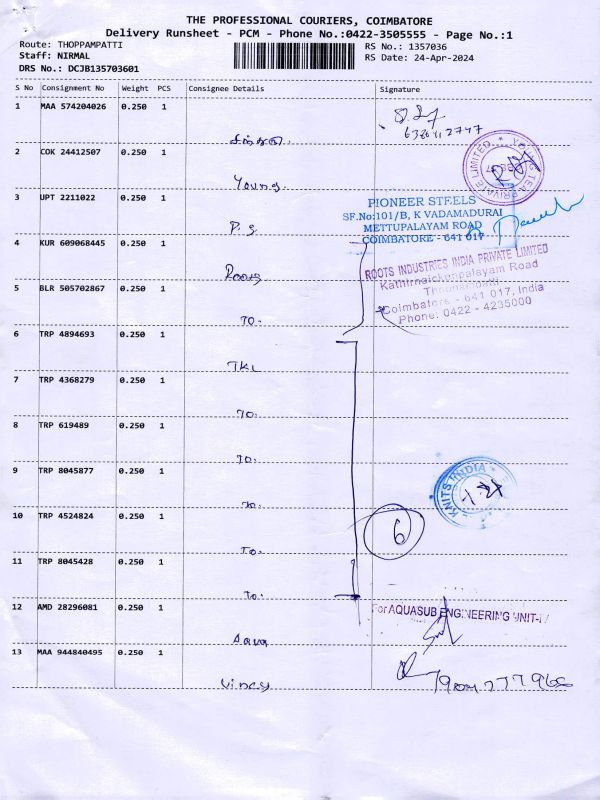 THE PROFESSIONAL COURIERS, COIMBATORE
Delivery Runsheet - PCM - Phone No.:0422-3505555 - Page No.:1
Route: THOPPAMPATTI
RS No.: 1357036
Staff: NIRMAL
RS Date: 24-Apr-2024
DRS No.: DCJB135703601
S No Consignment No Weight PCS Consignee Details Signature
1 MAA 574204026 0.250 1
2 COK 24412507 0.250 1
Young.
3 UPT 2211022 0.250 1
PIONEER STEELS
SF.No:101/B, K VADAMADURAI
METTUPALAYAM ROAD
COIMBATORE - 641 017
P.S.
4 KUR 609068445 0.250 1
ROOTS INDUSTRIES INDIA PRIVATE LIMITED
Kathirnaickenpalayam Road
Coimbatore - 641 017, India
Phone: 0422 - 4235000
Roots
5 BLR 505702867 0.250 1
TO.
6 TRP 4894693 0.250 1
TKL
7 TRP 4368279 0.250 1
TO.
8 TRP 619489 0.250 1
TO.
9 TRP 8045877 0.250 1
KNITS INDIA
To.
10 TRP 4524824 0.250 1
6
To.
11 TRP 8045428 0.250 1
To.
12 AMD 28296081 0.250 1
For AQUASUB ENGINEERING UNIT-IV
Aqua
13 MAA 944840495 0.250 1
Vincy